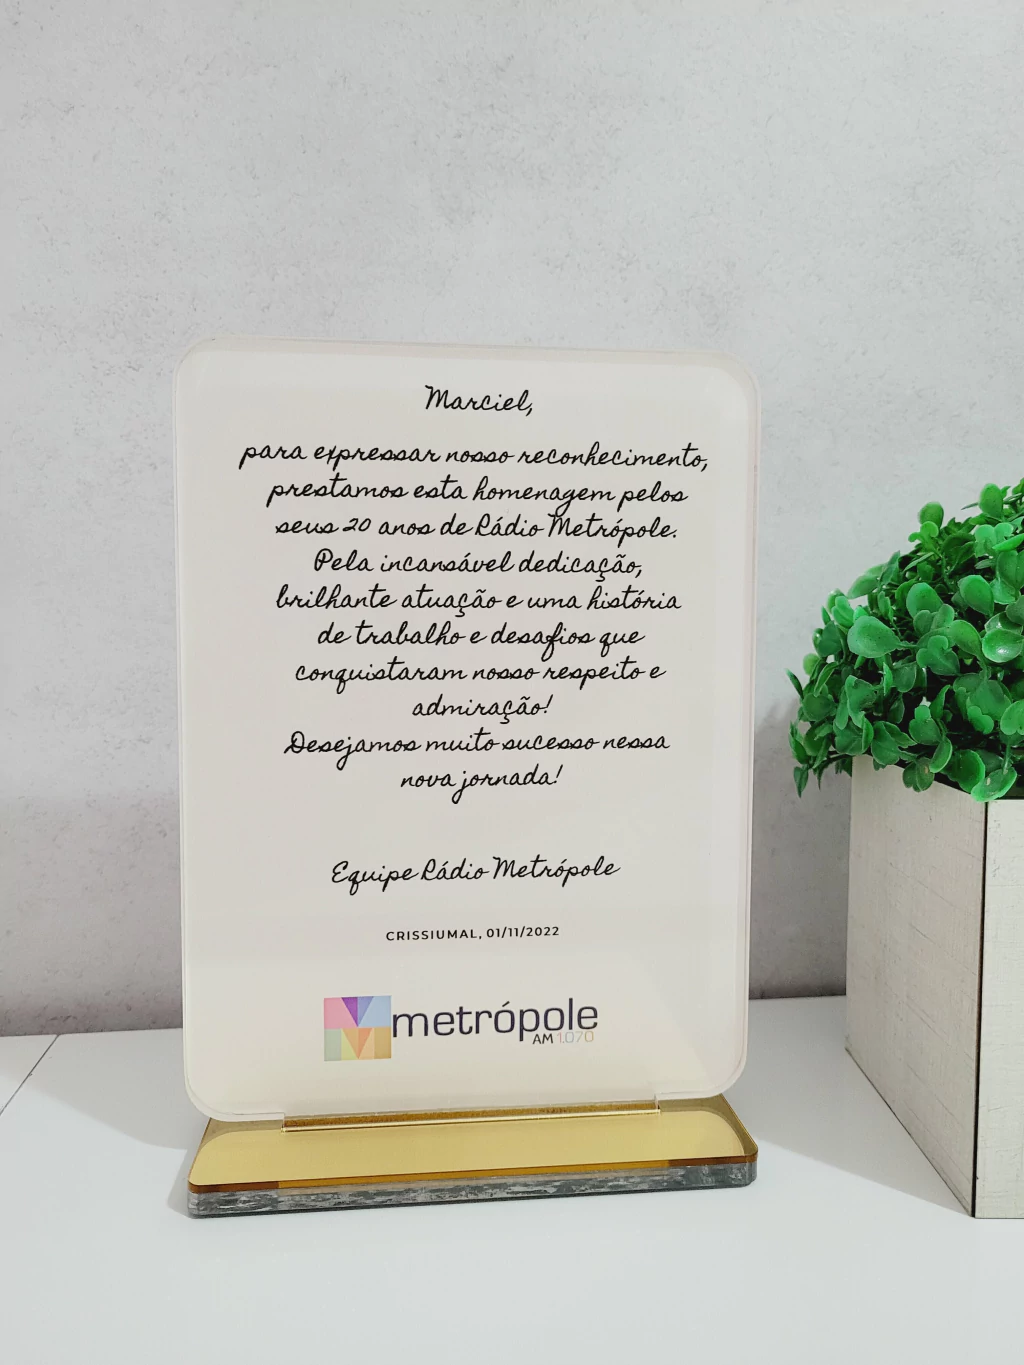 Marciel,
para expressar nosso reconhecimento,
prestamos esta homenagem pelos
seus 20 anos de Rádio Metrópole.
Pela incansável dedicação,
brilhante atuação e uma história
de trabalho e desafios que
conquistaram nosso respeito e
admiração!
Desejamos muito sucesso nessa
nova jornada!
Equipe Rádio Metrópole
CRISSIUMAL, 01/11/2022
metrópole
AM 1.070